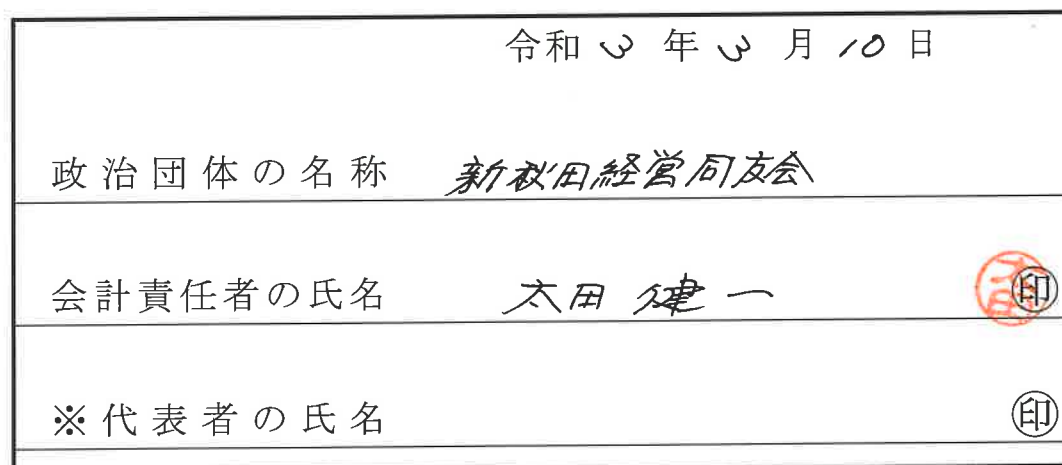 令和 3 年 3 月 10 日
政治団体の名称 新秋田経営同友会
会計責任者の氏名 太田 健一 ㊞
※代表者の氏名 ㊞